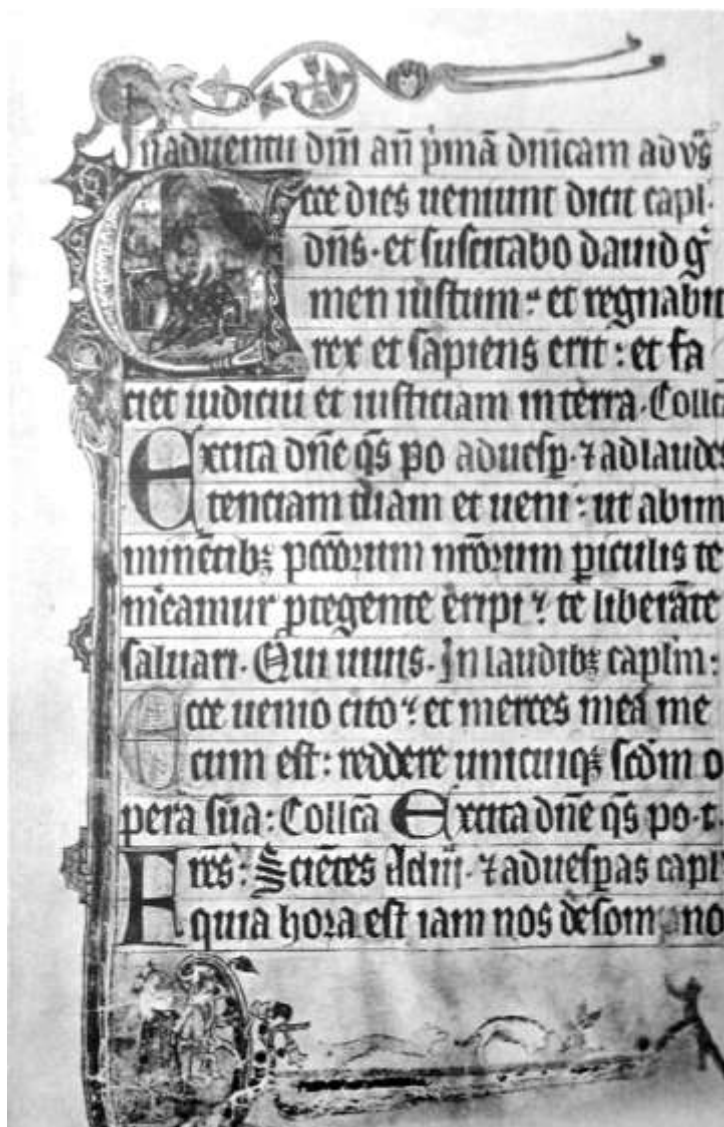 In aduentu dñi añ p̃mã dñicam ad vs̃
Ecce dies ueniunt dicit capl·
dñs· et suscitabo dauid g̃
men iustum: et regnabit
rex et sapiens erit: et fa
ciet iudiciũ et iusticiam in terra· Collcã
Excita dñe qs̃ po ad uesp̃· ⁊ ad laudes
tenciam tuam et ueni: ut ab im
minẽtibꝫ pccõrum nrõrum piculis te
meamur ptegente eripi ⁊ te liberãte
saluari· Qui uiuis· In laudibꝫ caplm̃:
Ecce uenio cito ⁊ et merces mea me
cum est: reddere unicuiqꝫ scdm̃ o
pera sũa: Collcã Excita dñe qs̃ po·t·
F res̃: Sciẽtes ⁊ ad uesp̃as capl̃
quia hora est iam nos de somp no